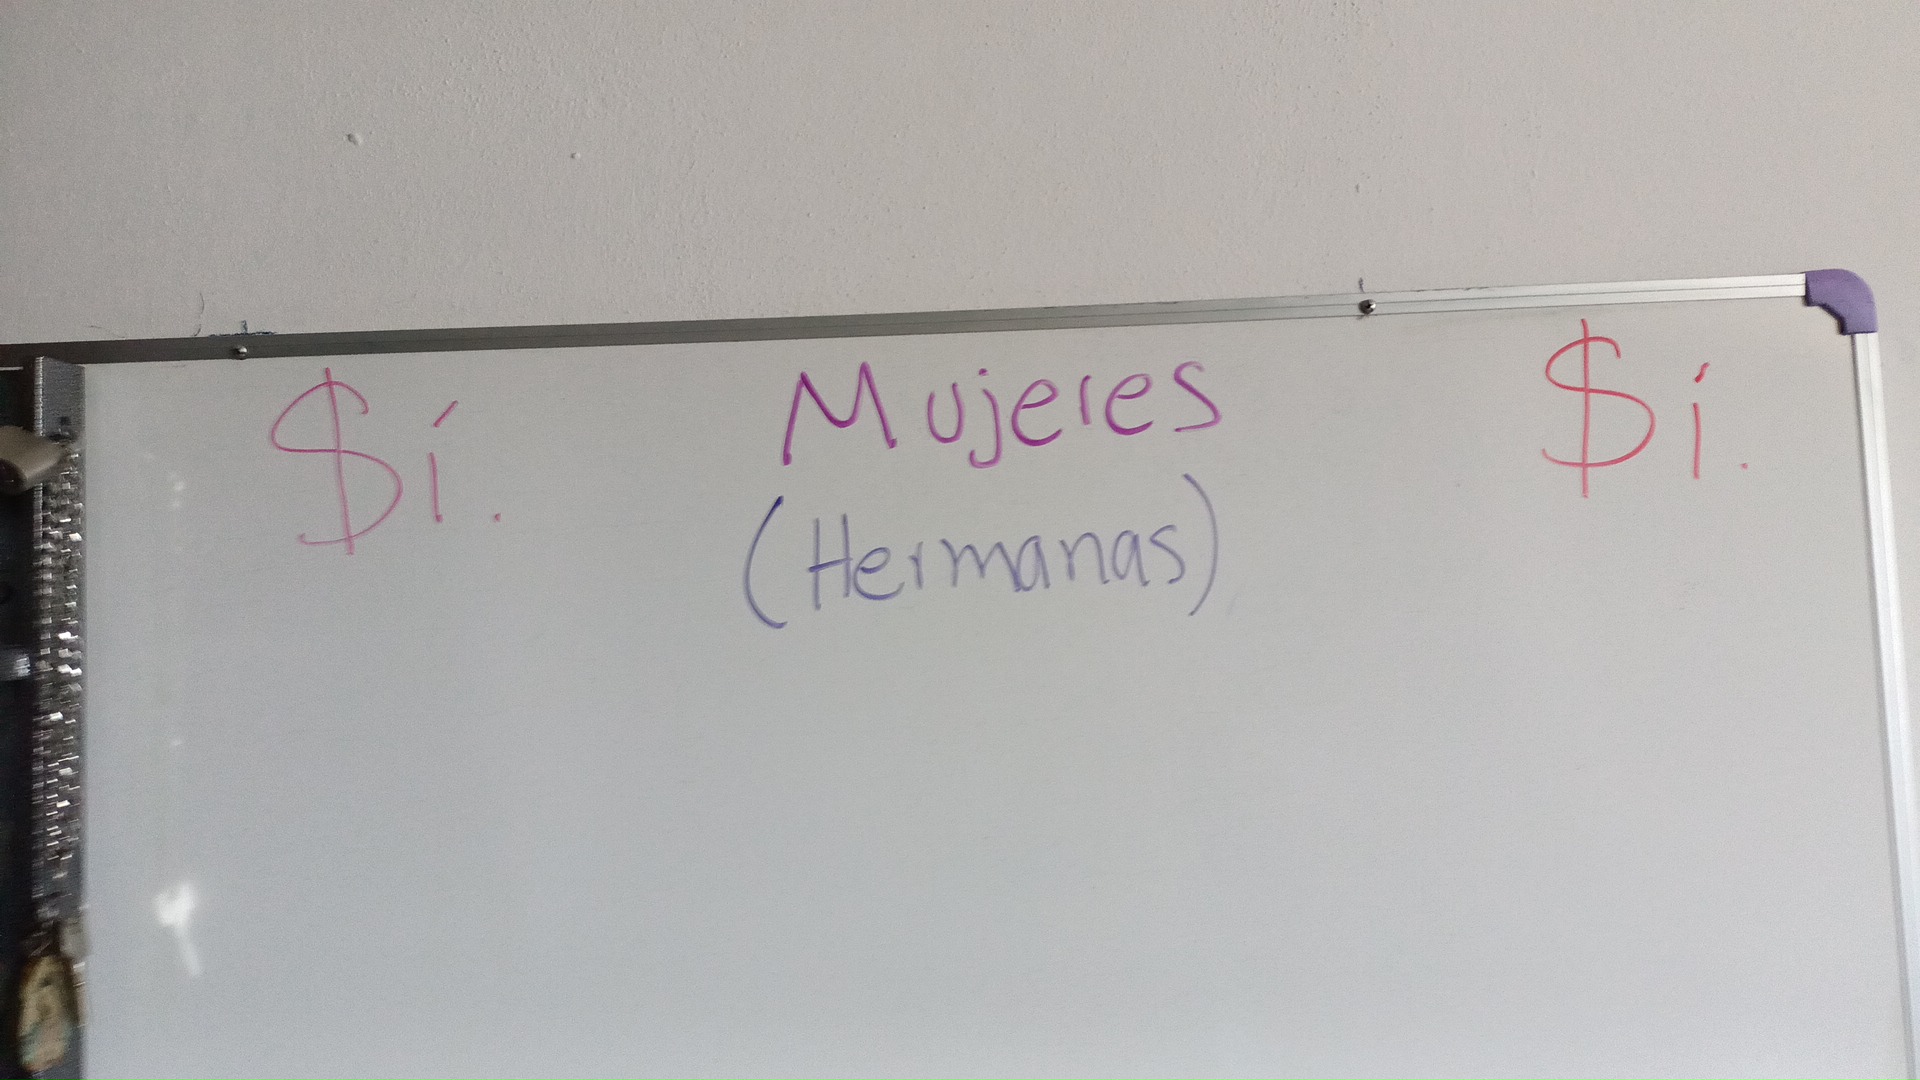 $í. Mujeres $i.
(Hermanas)